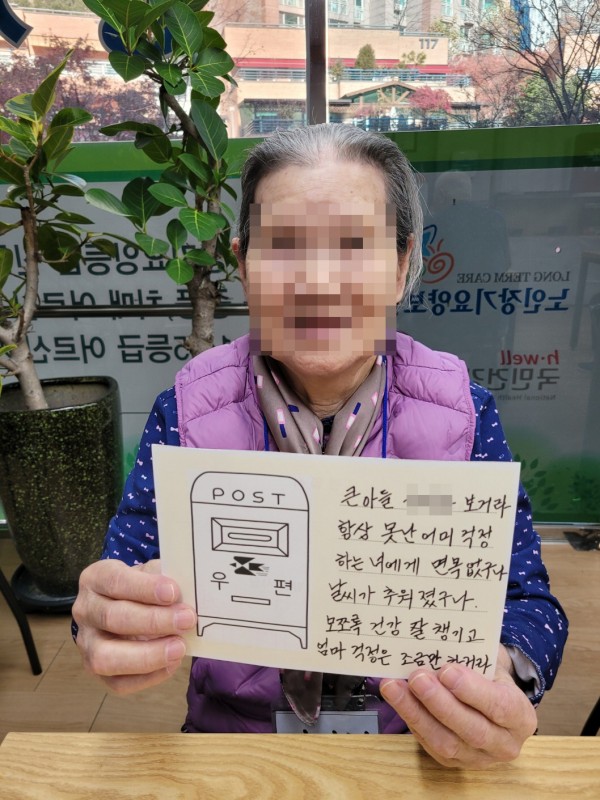 117
LONG TERM CARE
노인장기요양보
h·well
국민건
POST
우 편
큰아들 보거라
항상 못난 어미 걱정
하는 너에게 면목 없구나
날씨가 추워 졌구나.
모쪼록 건강 잘 챙기고
엄마 걱정은 조금만 하거라